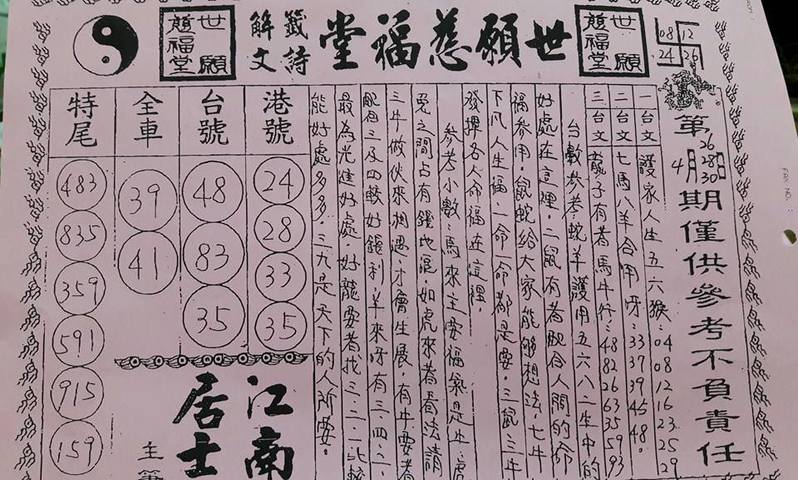 世願慈福堂
籤詩解文
世願慈福堂
世願慈福堂
08 12
24 26
第 期僅供參考不負責任
4月 26 28 30 日
一台文 護家人生五六猴:04 08 12 16 23 25 29
二台文 七馬八羊合用牙:33 37 39 46 48。
三台文 龍子有者馬牛行:48 82 63 35 59 93
台數參考蛇羊護用五六八二生中的
好處在這裡,二鼠有者配合人間的命
福參用,鼠蛇給大家能夠想法,七牛
下凡人生福一命一命都是要,三鼠三牛
發揮各人命福在這裡,
參考小數:馬來主要福氣是牛、虎
兔之間占有錢也混,如虎來者看法請
三牛做伙來相遇,才會生展,有牛要者
配合之及四較好錢利,羊來牙有三四二、
最為先進好處,好龍要者找三二一比較
能好處多多,三九是天下的人所要。
港號
24
28
33
35
台號
48
83
35
全車
39
41
特尾
483
835
359
591
915
159
江南居士
主